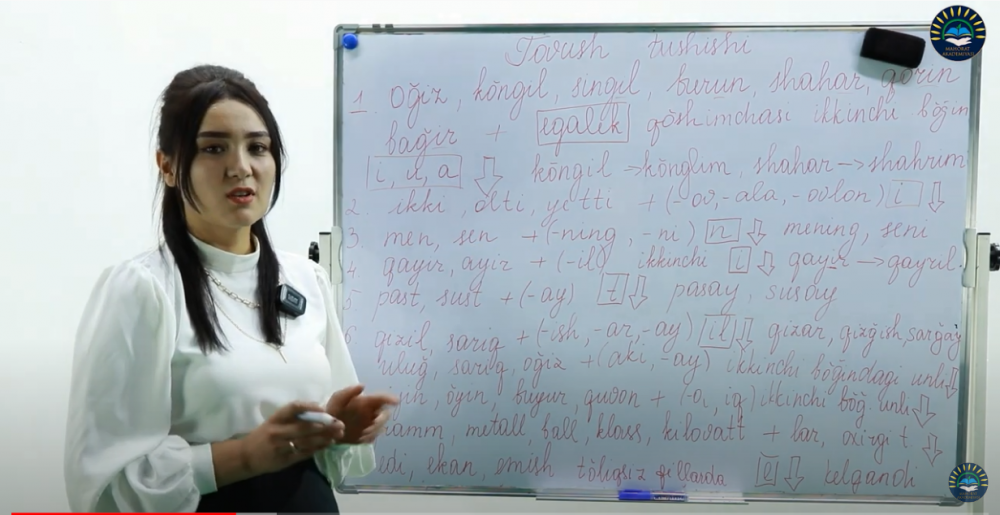 Tovush tushishi
1. oğiz, kõngil, singil, burun, shahar, qorin
bağir + egalik qõshimchasi ikkinchi bõğin
i, u, a ⇩ kõngil → kõnglim, shahar → shahrim
2. ikki, olti, yetti + (-ov, -ala, -ovlon) i ⇩
3. men, sen + (-ning, -ni) n ⇩ mening, seni
4. qayir, ayir + (-il) ikkinchi i ⇩ qayir → qayril
5 past, sust + (-ay) t ⇩ pasay, susay
6 qizil, sariq + (-ish, -ar, -ay) il ⇩ qizar, qizğish, sarğay
uluğ, sariq, oğiz + (aki, -ay) ikkinchi bõğindagi unli ⇩
õyin, buyur, quvon + (-oi, iq) ikkinchi bõğ. unli ⇩
metall, ball, klass, kilovatt + lar, oxirgi t ⇩
edi, ekan, emish tõliqsiz fillarda e ⇩ kelgandi
MAHORAT AKADEMIYASI